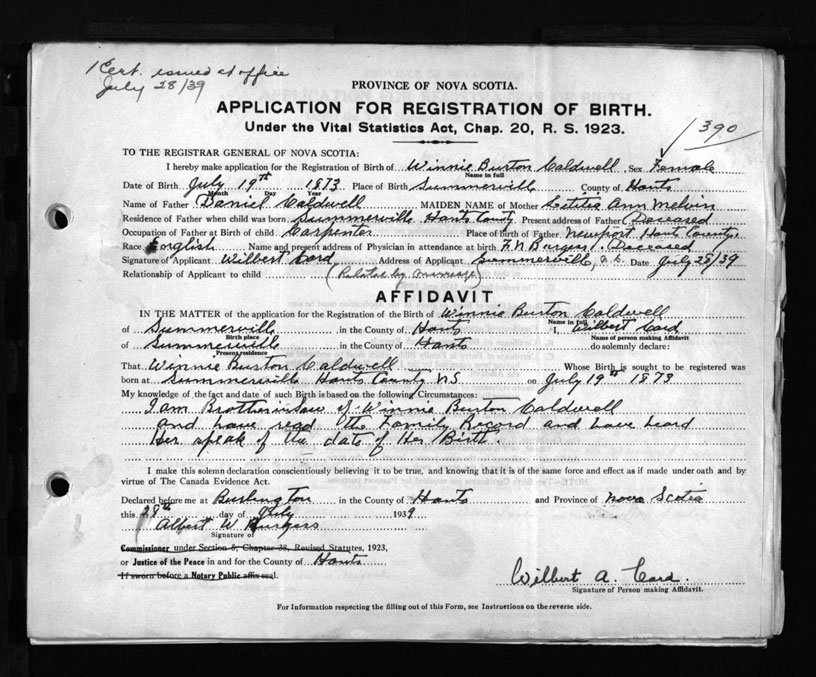 1 Cert. issued at office
July 28/39
PROVINCE OF NOVA SCOTIA.
APPLICATION FOR REGISTRATION OF BIRTH.
Under the Vital Statistics Act, Chap. 20, R. S. 1923.
390
TO THE REGISTRAR GENERAL OF NOVA SCOTIA:
I hereby make application for the Registration of Birth of Winnie Burton Caldwell Sex Female
Name in full
Date of Birth July 19th 1873 Place of Birth Summerville County of Hants
Month Day Year
Name of Father Daniel Caldwell MAIDEN NAME of Mother Letitia Ann Melvin
Residence of Father when child was born Summerville Hants County Present address of Father (Deceased
Occupation of Father at Birth of child Carpenter Place of Birth of Father Newport Hants County.
Race English Name and present address of Physician in attendance at birth F. N. Burgess. Deceased
Signature of Applicant Wilbert Card Address of Applicant Summerville, N.S. Date July 28/39
Relationship of Applicant to child (Related by marriage)
AFFIDAVIT
IN THE MATTER of the application for the Registration of the Birth of Winnie Burton Caldwell
Name in full
of Summerville in the County of Hants I, Wilbert Card
Birth place Name of person making Affidavit
of Summerville in the County of Hants do solemnly declare:
Present residence
That Winnie Burton Caldwell Whose Birth is sought to be registered was
born at Summerville Hants County NS on July 19th 1873
My knowledge of the fact and date of such Birth is based on the following Circumstances:
I am Brother in law of Winnie Burton Caldwell
and have read the Family Record and have heard
Her speak of the date of Her Birth.
I make this solemn declaration conscientiously believing it to be true, and knowing that it is of the same force and effect as if made under oath and by
virtue of The Canada Evidence Act.
Declared before me at Burlington in the County of Hants and Province of Nova Scotia
this 28th day of July 1939
Albert W Burgess
Signature of
Commissioner under Section 8, Chapter 38, Revised Statutes, 1923,
or Justice of the Peace in and for the County of Hants
If sworn before a Notary Public affix seal.
Wilbert A. Card.
Signature of Person making Affidavit.
For Information respecting the filling out of this Form, see Instructions on the reverse side.